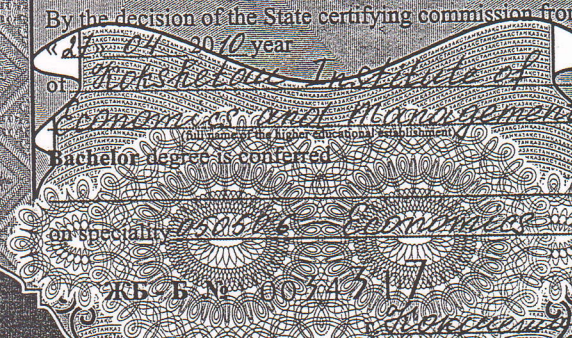 By the decision of the State certifying commission from
«27» 04 2010 year
of Kokshetau Institute of
Economics and Management
(full name of the higher educational establishment)
Bachelor degree is conferred
on speciality 050506 Economics
ЖБ - Б № 0034317
г.